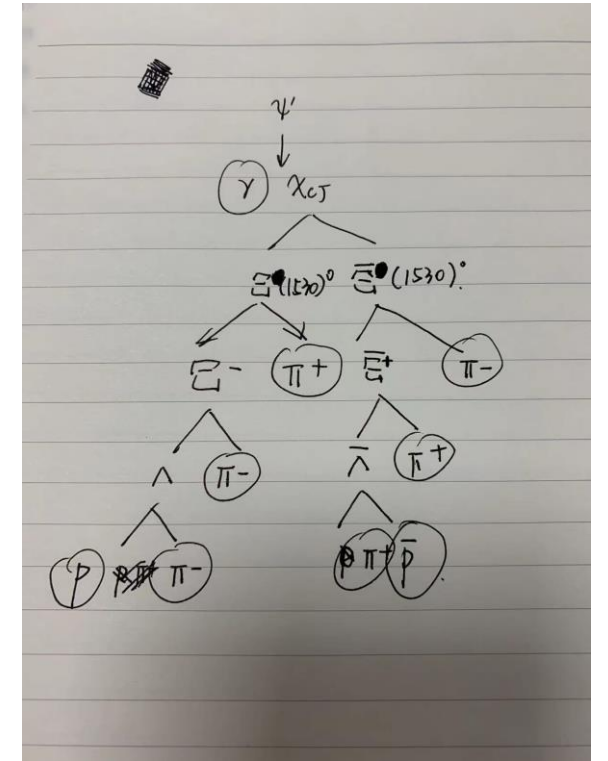 ψ'
γ χcJ
Ξ(1530)⁰ Ξ̅(1530)⁰.
Ξ⁻ π⁺ Ξ̅⁺ π⁻
Λ π⁻ Λ̅ π⁺
p π⁻ π⁺ p̅.